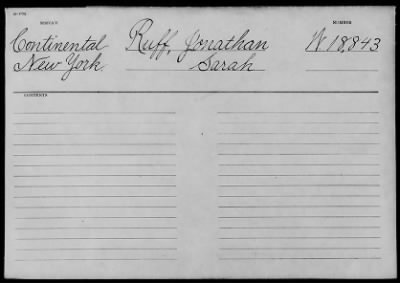 SERVICE
NUMBER
Continental Ruff, Jonathan W 18,843
New York. Sarah
CONTENTS